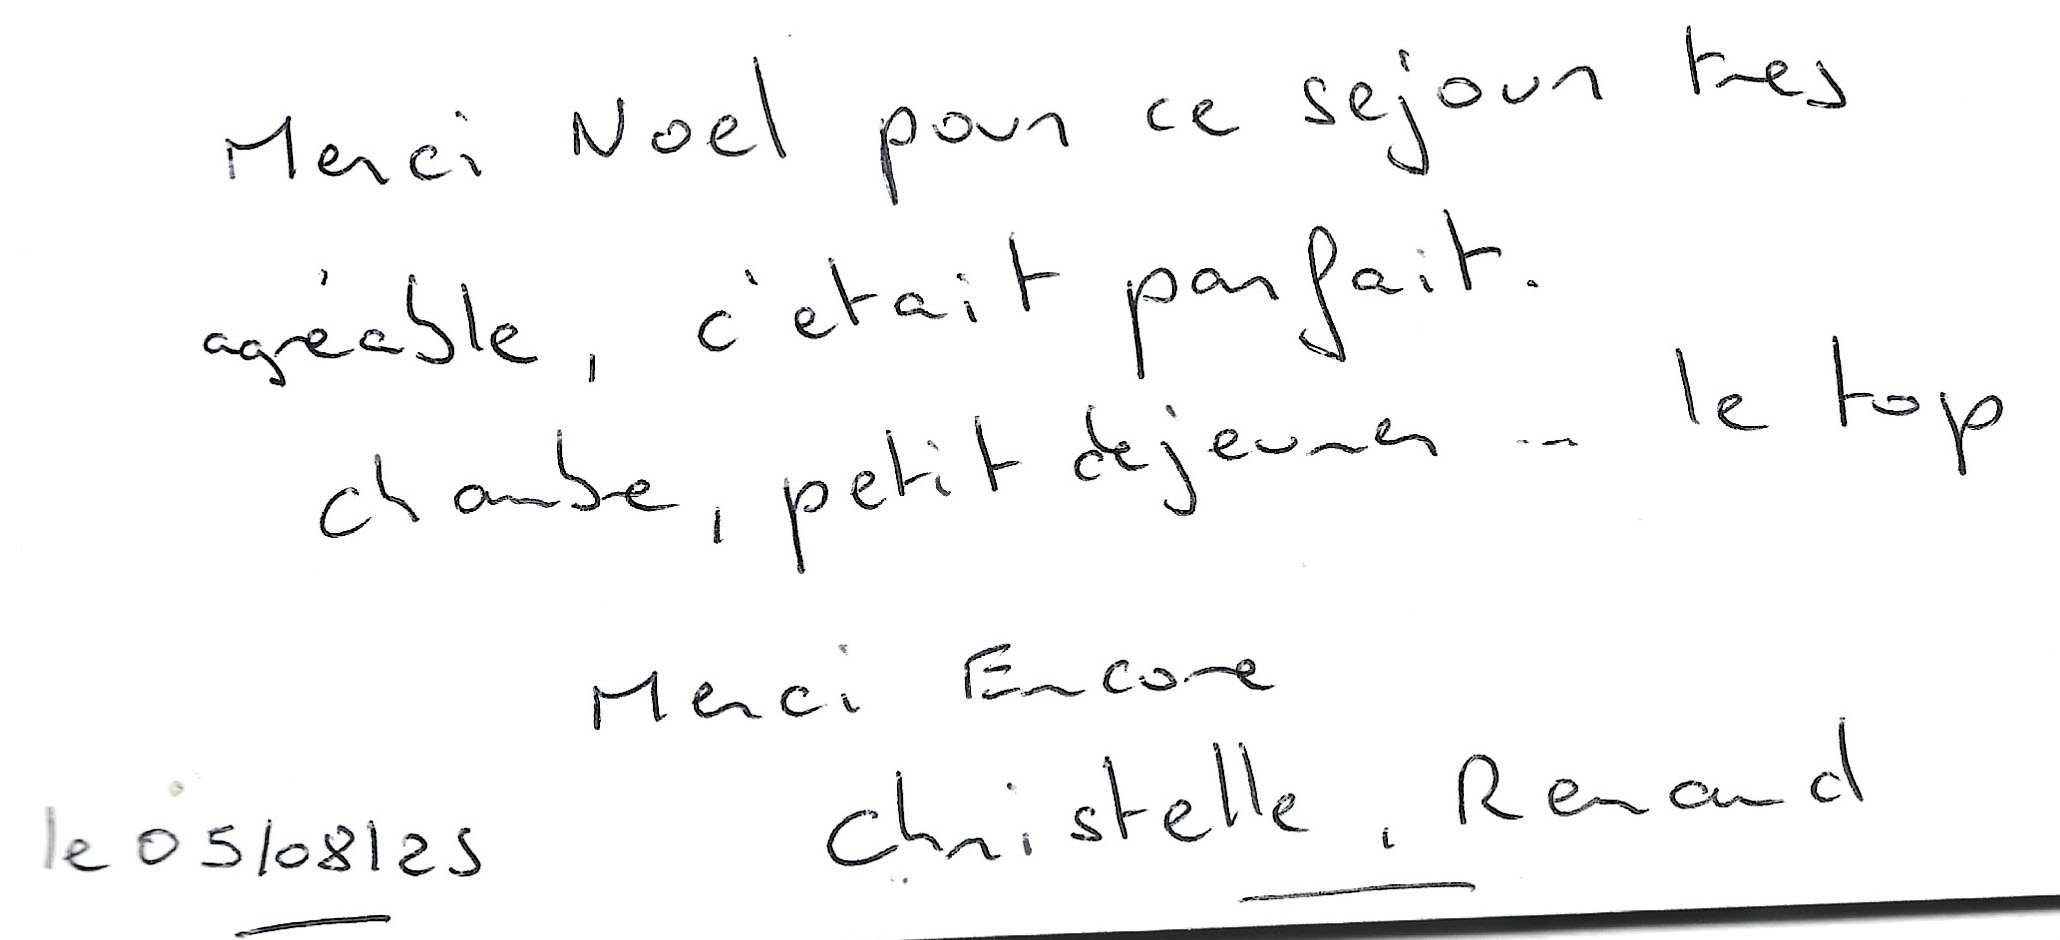 Merci Noel pour ce sejour tres
agréable, c'etait parfait.
chambre, petit dejeuner ... le top
Merci Encore
Christelle, Renaud
le 05/08/25